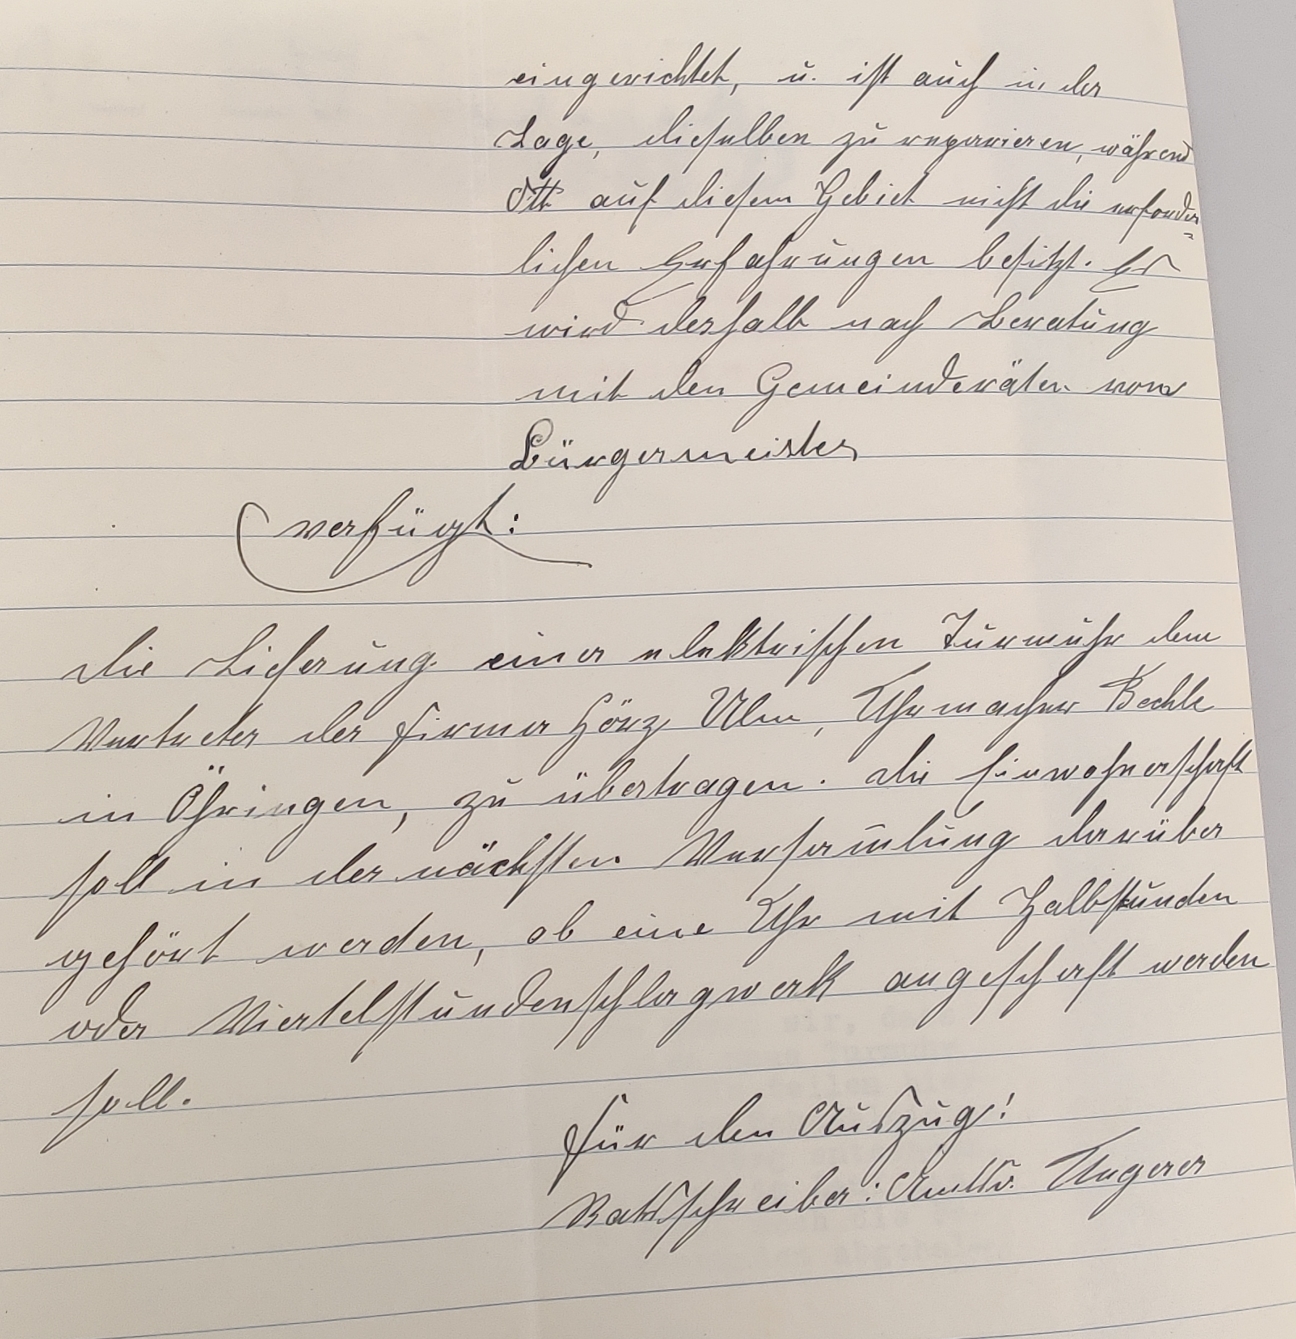 eingerichtet, u. ist auch in der
Lage, dieselben zu reparieren, während
Ott auf diesem Gebiet nicht die erforder=
lichen Erfahrungen besitzt. Es
wird deshalb nach Beratung
mit den Gemeinderäten vom
Bürgermeister
verfügt:
die Lieferung einer elektrischen Turmuhr dem
Vertreter der Firma Hörz Ulm, Uhrmacher Bechle
in Öhringen, zu übertragen. Die Einwohnerschaft
soll in der nächsten Versam̄lung darüber
gehört werden, ob eine Uhr mit Halbstunden
oder Viertelstundenschlagwerk angeschafft werden
soll.
Für den Auszug!
Ratsschreiber: Amtsv. Ungerer